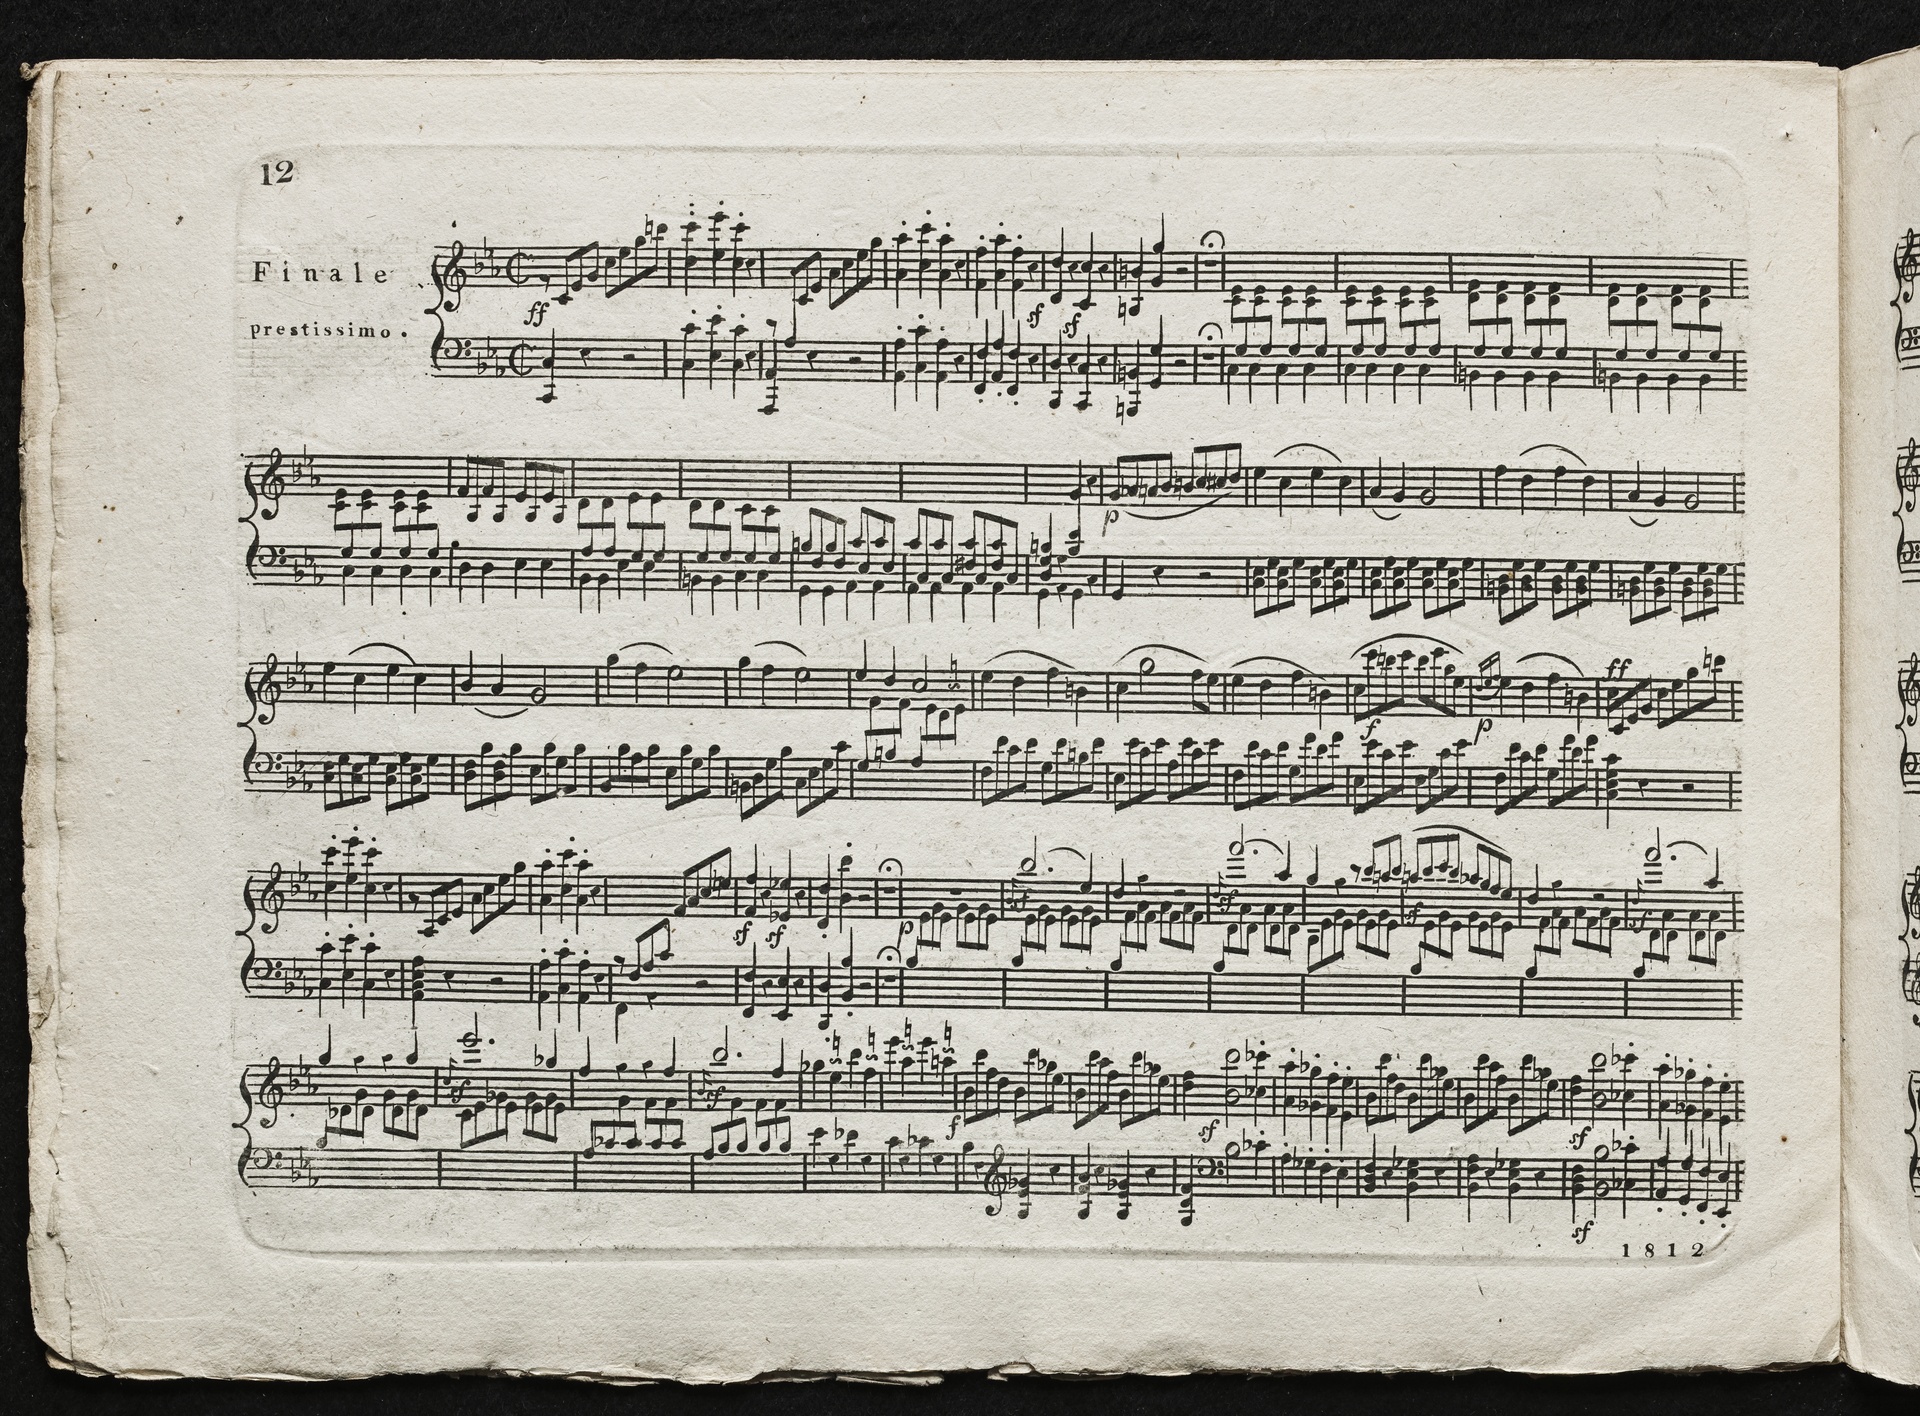 12
Finale
prestissimo.
ff
sf sf
p
ff
f p
sf sf p sf sf sf sf
sf sf f sf sf
sf
1812